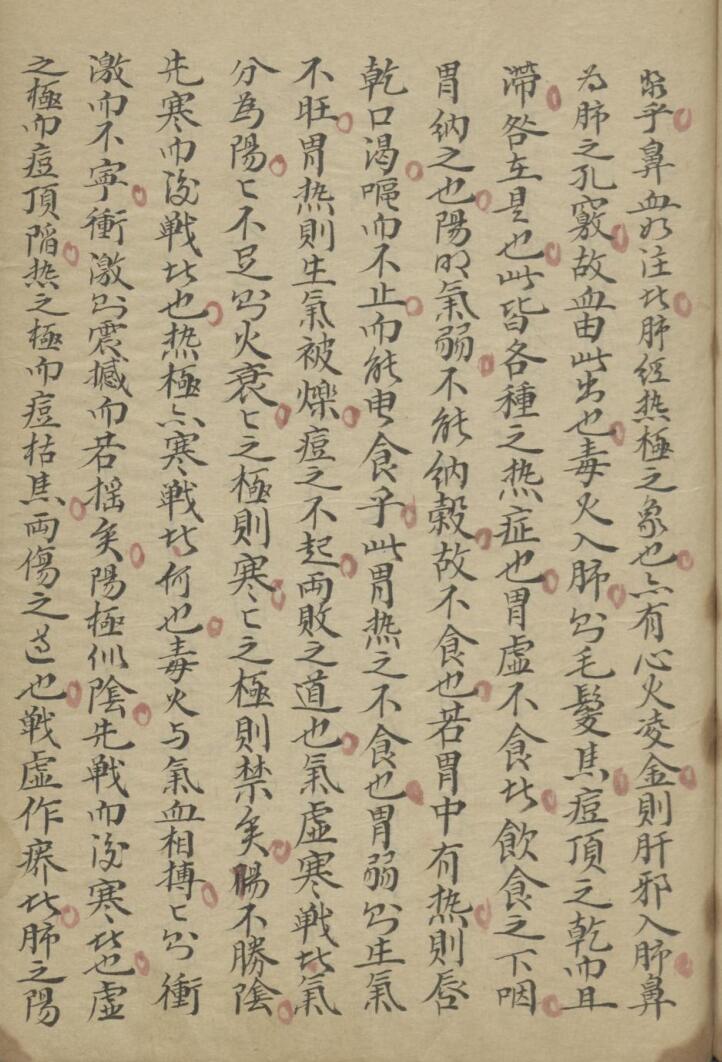 乎鼻血如注者肺經热極之象也亦有心火凌金則肝邪入肺鼻
為肺之孔竅故血由此出也毒火入肺則毛髮焦痘頂之乾而且
滯咎在是也此皆各種之热症也胃虛不食者飲食之下咽
胃納之也陽明氣弱不能納穀故不食也若胃中有热則唇
乾口渴嘔而不止而能思食乎此胃热之不食也胃弱則生氣
不旺胃热則生氣被爍痘之不起両敗之道也氣虛寒戰者氣
分為陽〻不足則火衰〻之極則寒〻之極則禁矣陽不勝陰
先寒而後戰者也热極亦寒戰者何也毒火与氣血相搏〻則衝
激而不寧衝激則震撼而若搖矣陽極似陰先戰而後寒者也虛
之極而痘頂陷热之極而痘枯焦両傷之道也戰虛作癢者肺之陽